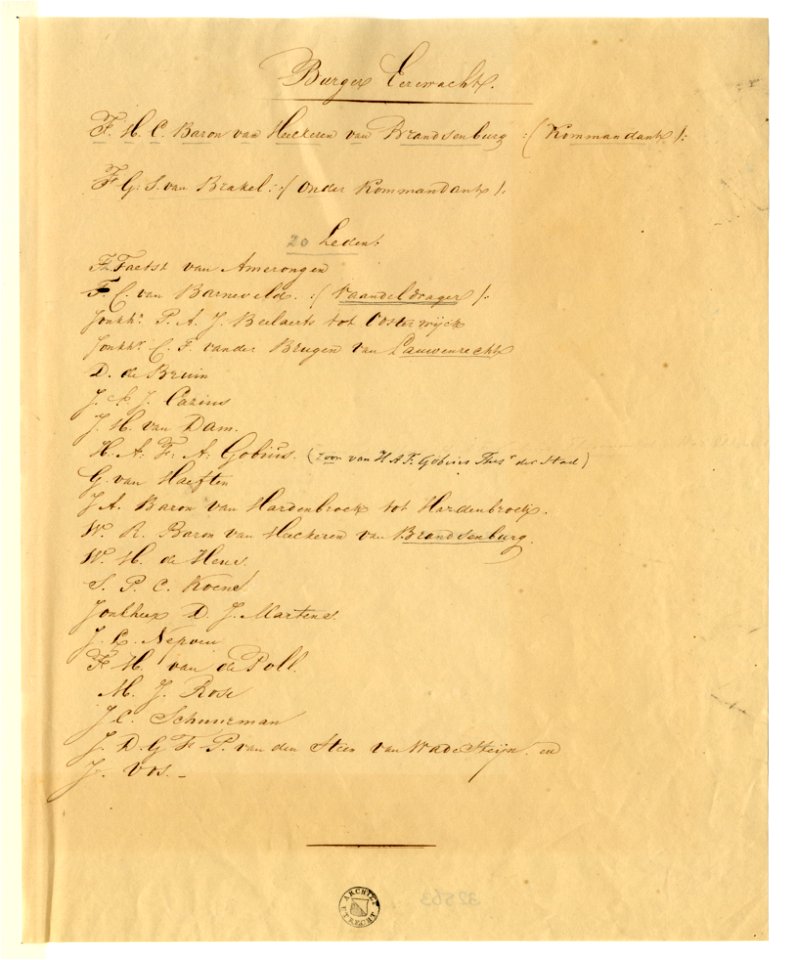 Burger Eerewacht.
F. H. C. Baron van Heeckeren van Brandsenburg :/ Kommandant /:
F. G. S. van Brakel :/ Onder Kommandant /:
20 Leden:
F. Taets van Amerongen
F. C. van Barneveld. :/ Vaandeldrager /:
Jonkhr. P. A. J. Beelaerts tot Oosterwijck
Jonkhr. C. F. vander Brugen van Lauwenrecht
D. de Bruin
J. J. Cazius
J. H. van Dam.
H. A. F. A. Gobius. (zoon van H A F. Gobius Thesr der Stad)
G. van Haeften
J A. Baron van Hardenbroek tot Hardenbroek.
W. R. Baron van Heeckeren van Brandsenburg.
W. H. de Heus.
S. P. C. Koene
Jonkheer D. J. Martens.
J. L. Nepveu
F. H. van de Poll.
M. J. Rose
J C. Schuurman
J. D. G F. P. van den Steen van Wadesteijn. en
J. Vos. -
ARCHIEF
UTRECHT
32563